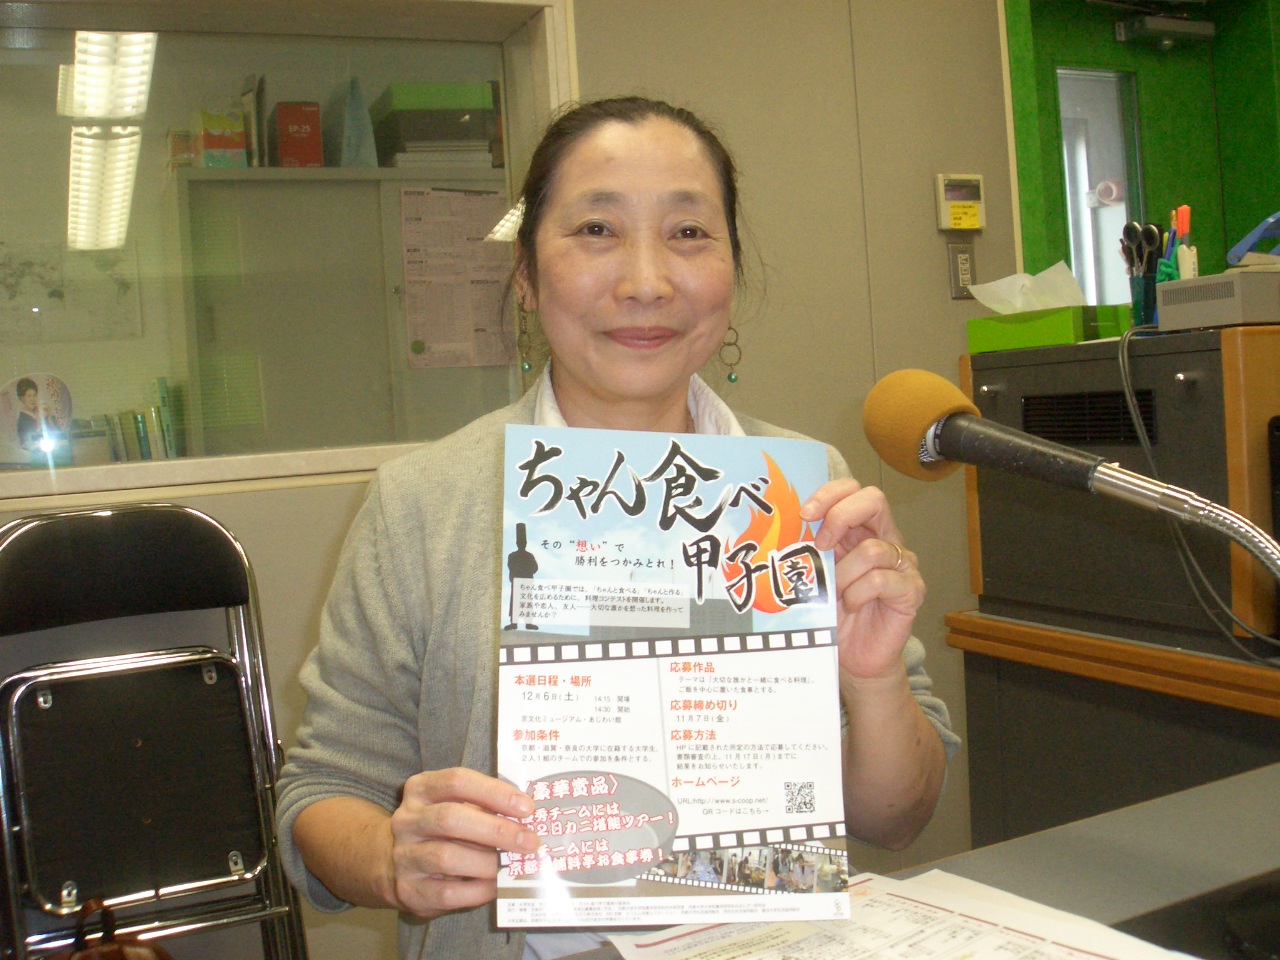 EP-25
ちゃん食べ
甲子園
その"想い"で
勝利をつかみとれ！
ちゃん食べ甲子園では、「ちゃんと食べる」「ちゃんと作る」
文化を広めるために、料理コンテストを開催します。
家族や恋人、友人――大切な誰かを想った料理を作って
みませんか？
本選日程・場所
12月6日(土) 14:15 開場
14:30 開始
京文化ミュージアム・あじわい館
参加条件
京都・滋賀・奈良の大学に在籍する大学生。
2人1組のチームでの参加を条件とする。
〈豪華賞品〉
秀チームには
2日カニ堪能ツアー！
チームには
京都 料亭お食事券！
応募作品
テーマは「大切な誰かと一緒に食べる料理」。
ご飯を中心に置いた食事とする。
応募締め切り
11月7日(金)
応募方法
HPに記載された所定の方法で応募してください。
書類審査の上、11月17日(月)までに
結果をお知らせいたします。
ホームページ
URL:http://www.s-coop.net/
QRコードはこちら→